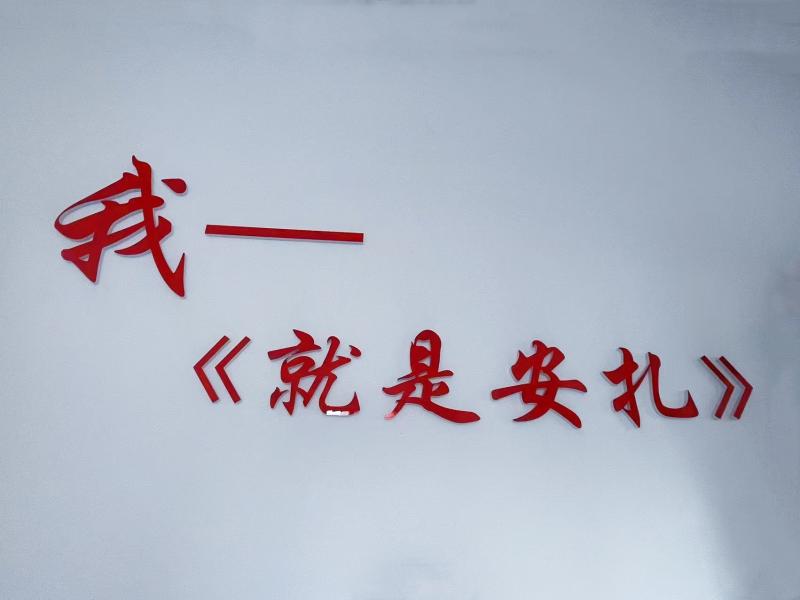 我—
《就是安扎》